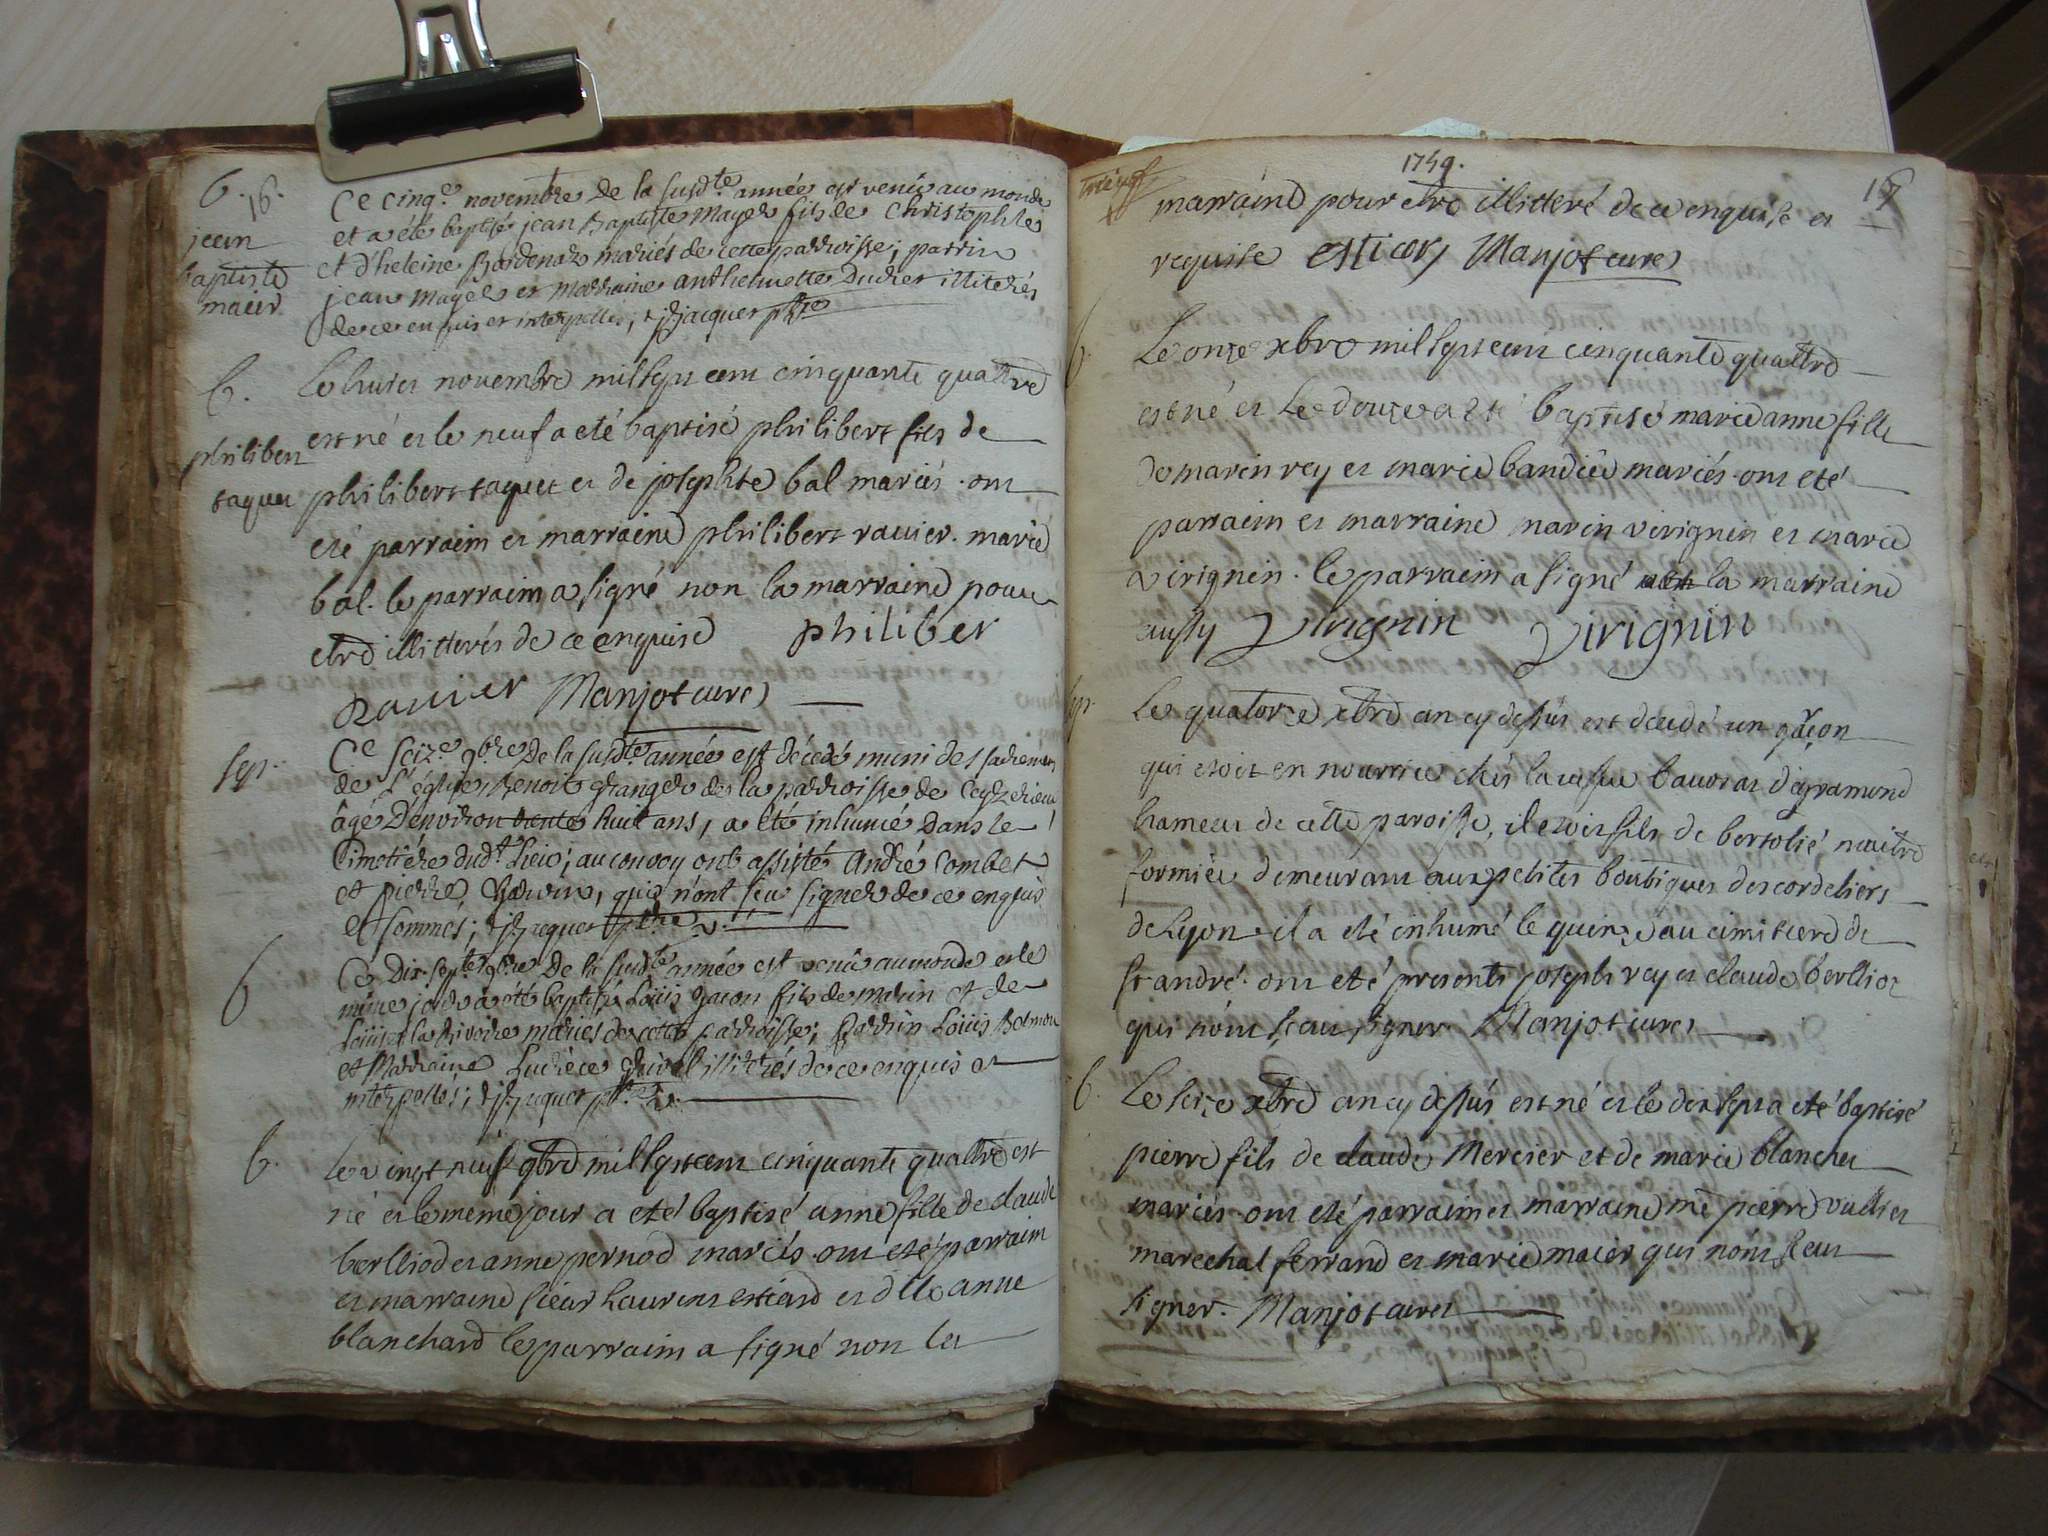 b. 16.
jean
baptiste
maier
Ce cinq.e novembre de la susdte année est venü au monde
et a été baptisé jean Baptiste mayer fils de Christophle
et d'heleine Bordenaz mariés de cette parroisse, parrin
jean mayer et marraine anthelmette Dudier illiterés
de ce enquis et interpellés; Jacquer ptre
b.
philibert
taquet
Le huict novembre mil sept cent cinquante quattre
est né et le neuf a eté baptisé philibert fils de
philibert taquet et de josephte bal mariés. ont
eté parraim et marraine philibert ravier. marie
bal. le parraim a signé non la marraine pour
etre illitterés de ce enquise philiber
Ravier Manjot curé
sep.
Ce seiz.e 9bre De la susdte année est décédé muni des sacremens
de l'église, Benoit Granger de la parroisse de Ceyzerieu
âgé D'environ trente huit ans, a été inhumé Dans le
Cimetière dudt. lieu; au convoy ont assisté André Combet
et pierre, qui n'ont sçu signer de ce enquis
et sommés; Jacquer ptre
b
Ce Dix-septe 9bre De la susdte année est venü au monde et le
même jour a été baptisé Loüis Jacon fils de marin et de
Loüise la Rivoire mariés de cette parroisse; Parrin Loüis Belmon
et Marraine Lucrèce illiterés de ce enquis et
interpellés; Jacquer ptre
b.
Le vingt neuf 9bre mil sept cent cinquante quattre est
né et le même jour a eté baptisé anne fille de claude
berlliod et anne pernod mariés. ont eté parraim
et marraine sieur Laurent esticard et dlle anne
blanchard le parraim a signé non la
1749.
17
marraine pour etre illitteré de ce enquise et
requise esticard Manjot curé
b.
Le onze xbre mil sept cent cinquante quattre
est né et le douze a eté baptisé marie anne fille
de marin rey et marie bandiée mariés. ont eté
parraim et marraine marin virignin et marie
virignin. le parraim a signé non la marraine
aussy Virignin Virignin
sep.
Le quatorze xbre an cy dessus est decedé un garçon
qui etoit en nourrice chés la veuve bauvrat d'agramond
hameau de cette paroisse, il etoit fils de bertolié maitre
formiér demeurant aux petites boutiques des cordeliers
de Lyon. il a eté inhumé le quinze au cimitiere de
st andré. ont eté presents joseph rey et claude berllioz
qui n'ont sceu signer. Manjot curé
b.
Le seize xbre an cy dessus est né et le dix sept a eté baptisé
pierre fils de claude Mercier et de marie blanchet
mariés. ont eté parraim et marraine me pierre vuillier
marechal ferrand et marie maier qui n'ont sceu
signer. Manjot curé